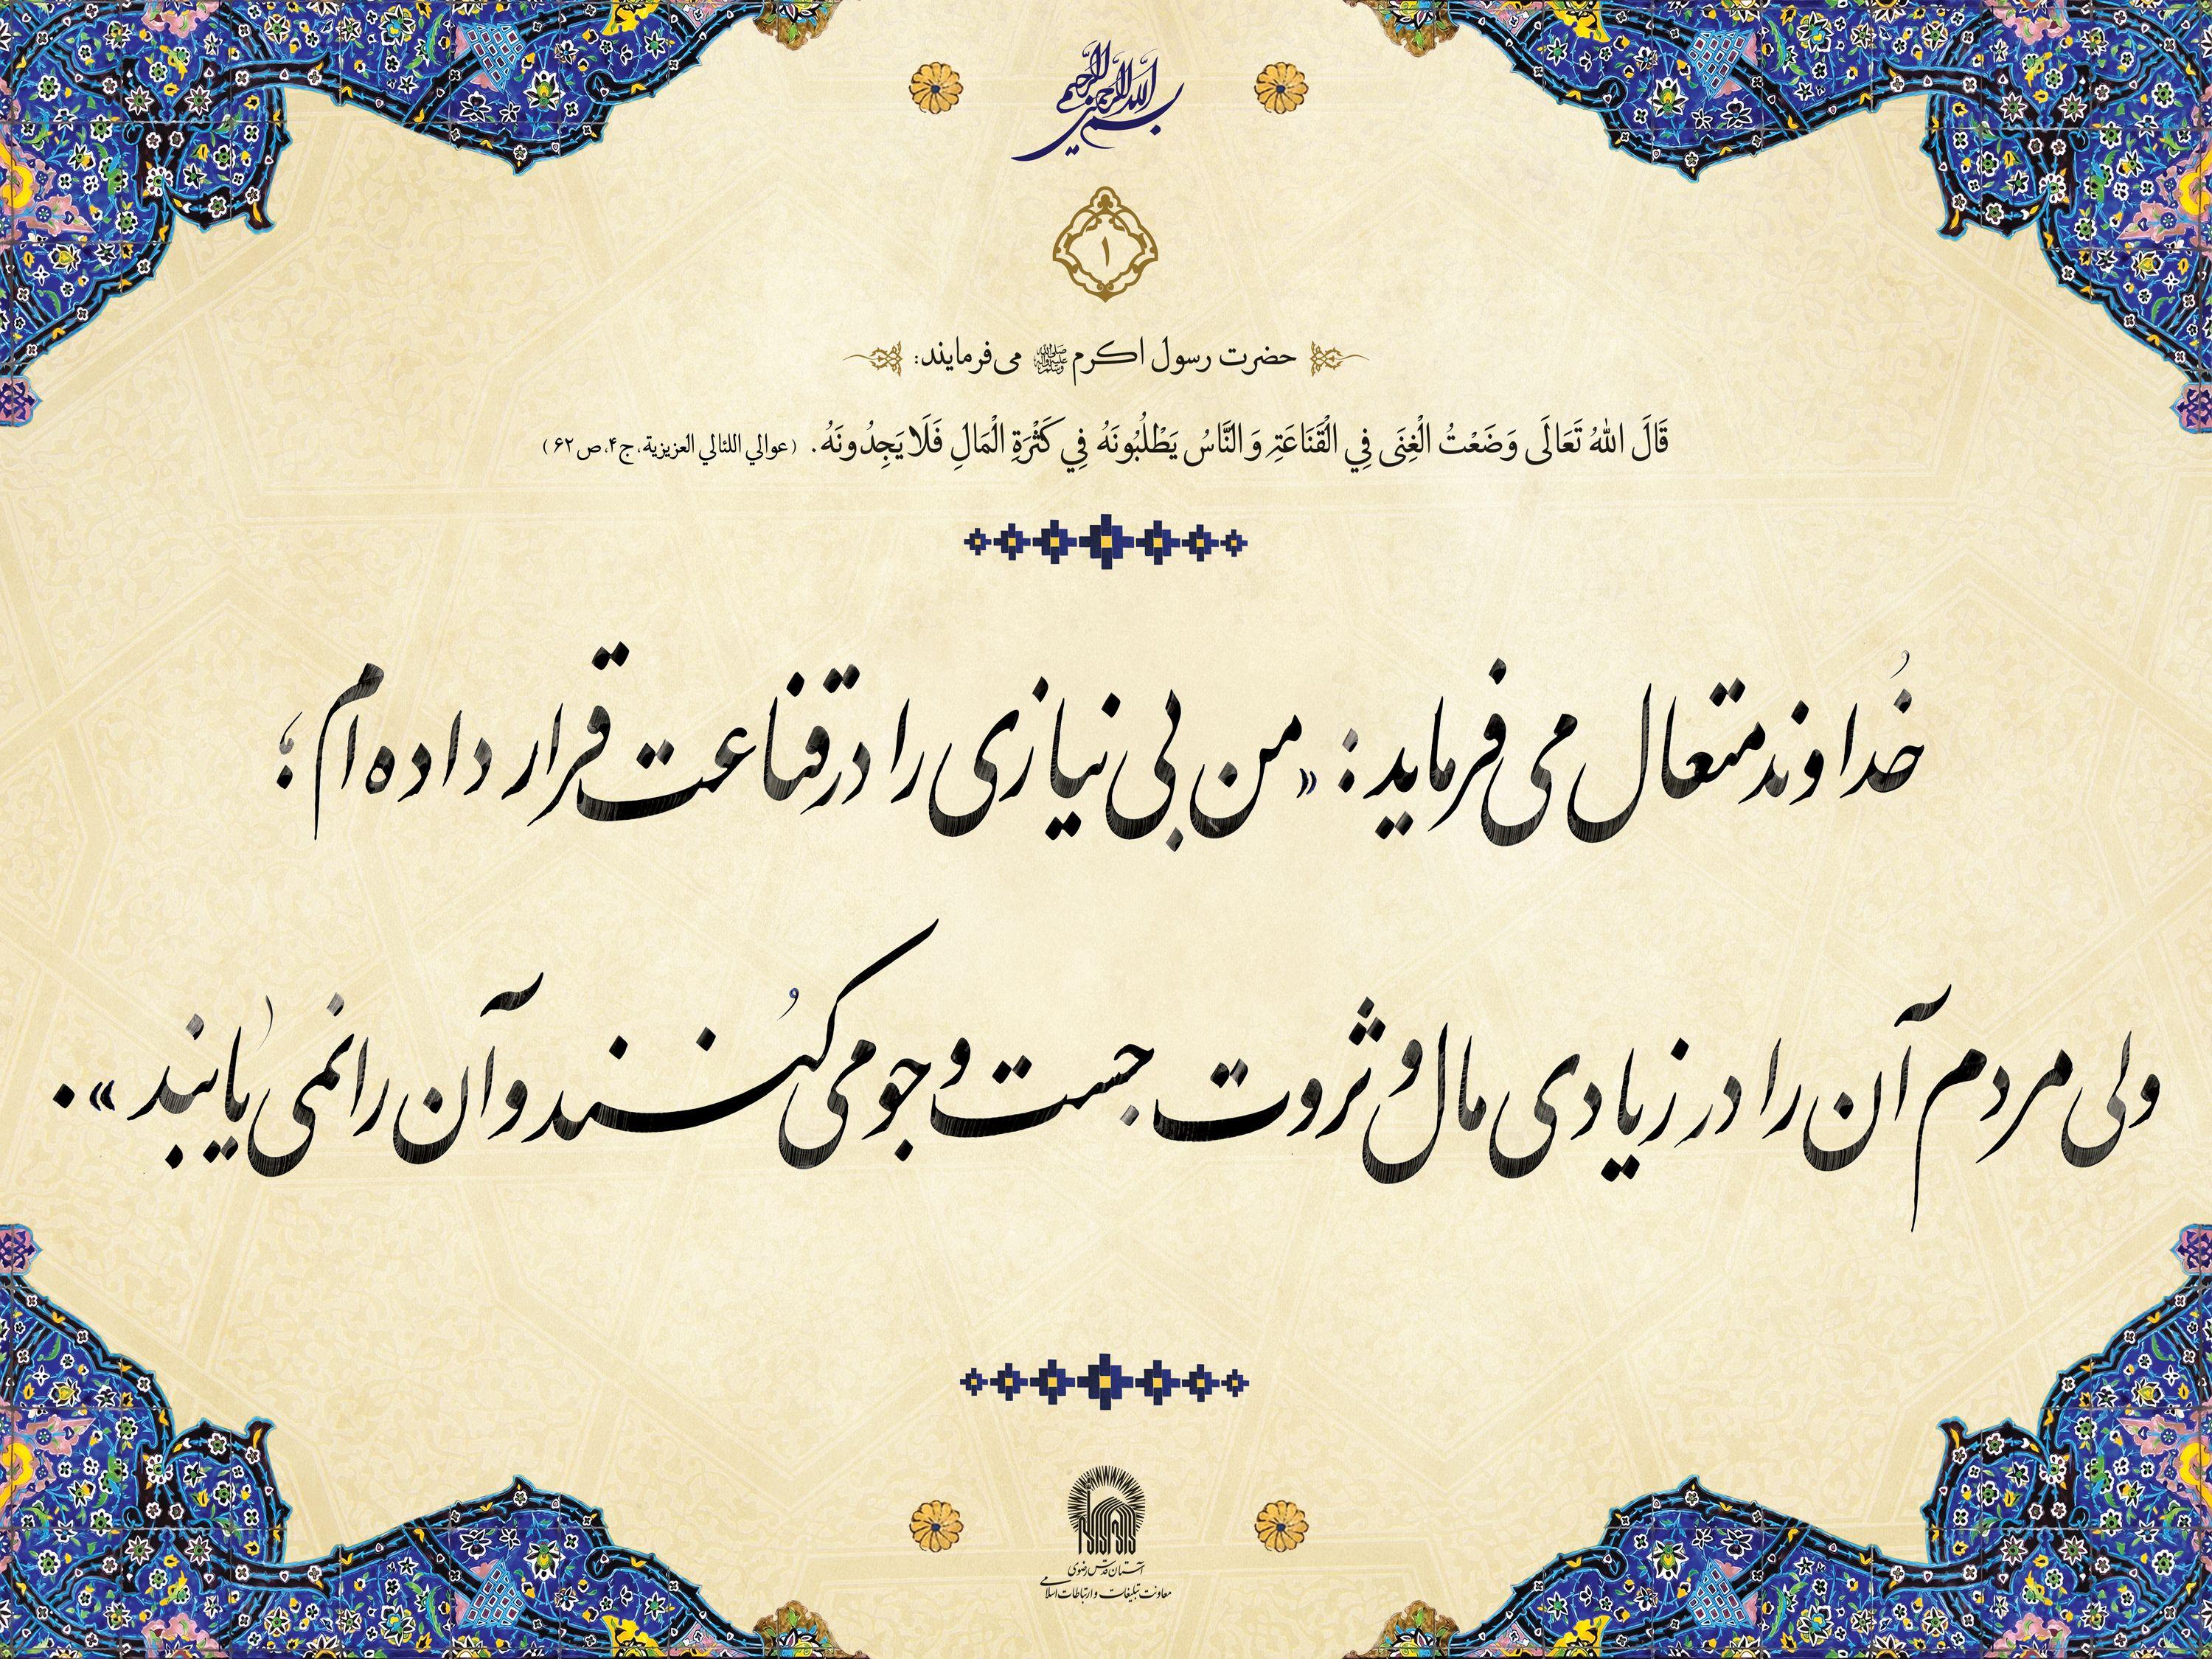 بسم الله الرحمن الرحیم
۱
حضرت رسول اکرم ﷺ می‌فرمایند:
قَالَ اللهُ تَعَالَى وَضَعْتُ الْغِنَى فِي الْقَنَاعَةِ وَ النَّاسُ يَطْلُبُونَهُ فِي كَثْرَةِ الْمَالِ فَلَا يَجِدُونَهُ. (عوالي اللئالي العزيزية، ج۴، ص۶۲)
خُداوند متعال می فرماید: «من بی نیازی را در قناعت قرار داده ام؛
ولی مردم آن را در زیادی مال و ثروت جست و جو می کُنند و آن را نمی یابند».
آستان قدس رضوی
معاونت تبلیغات و ارتباطات اسلامی